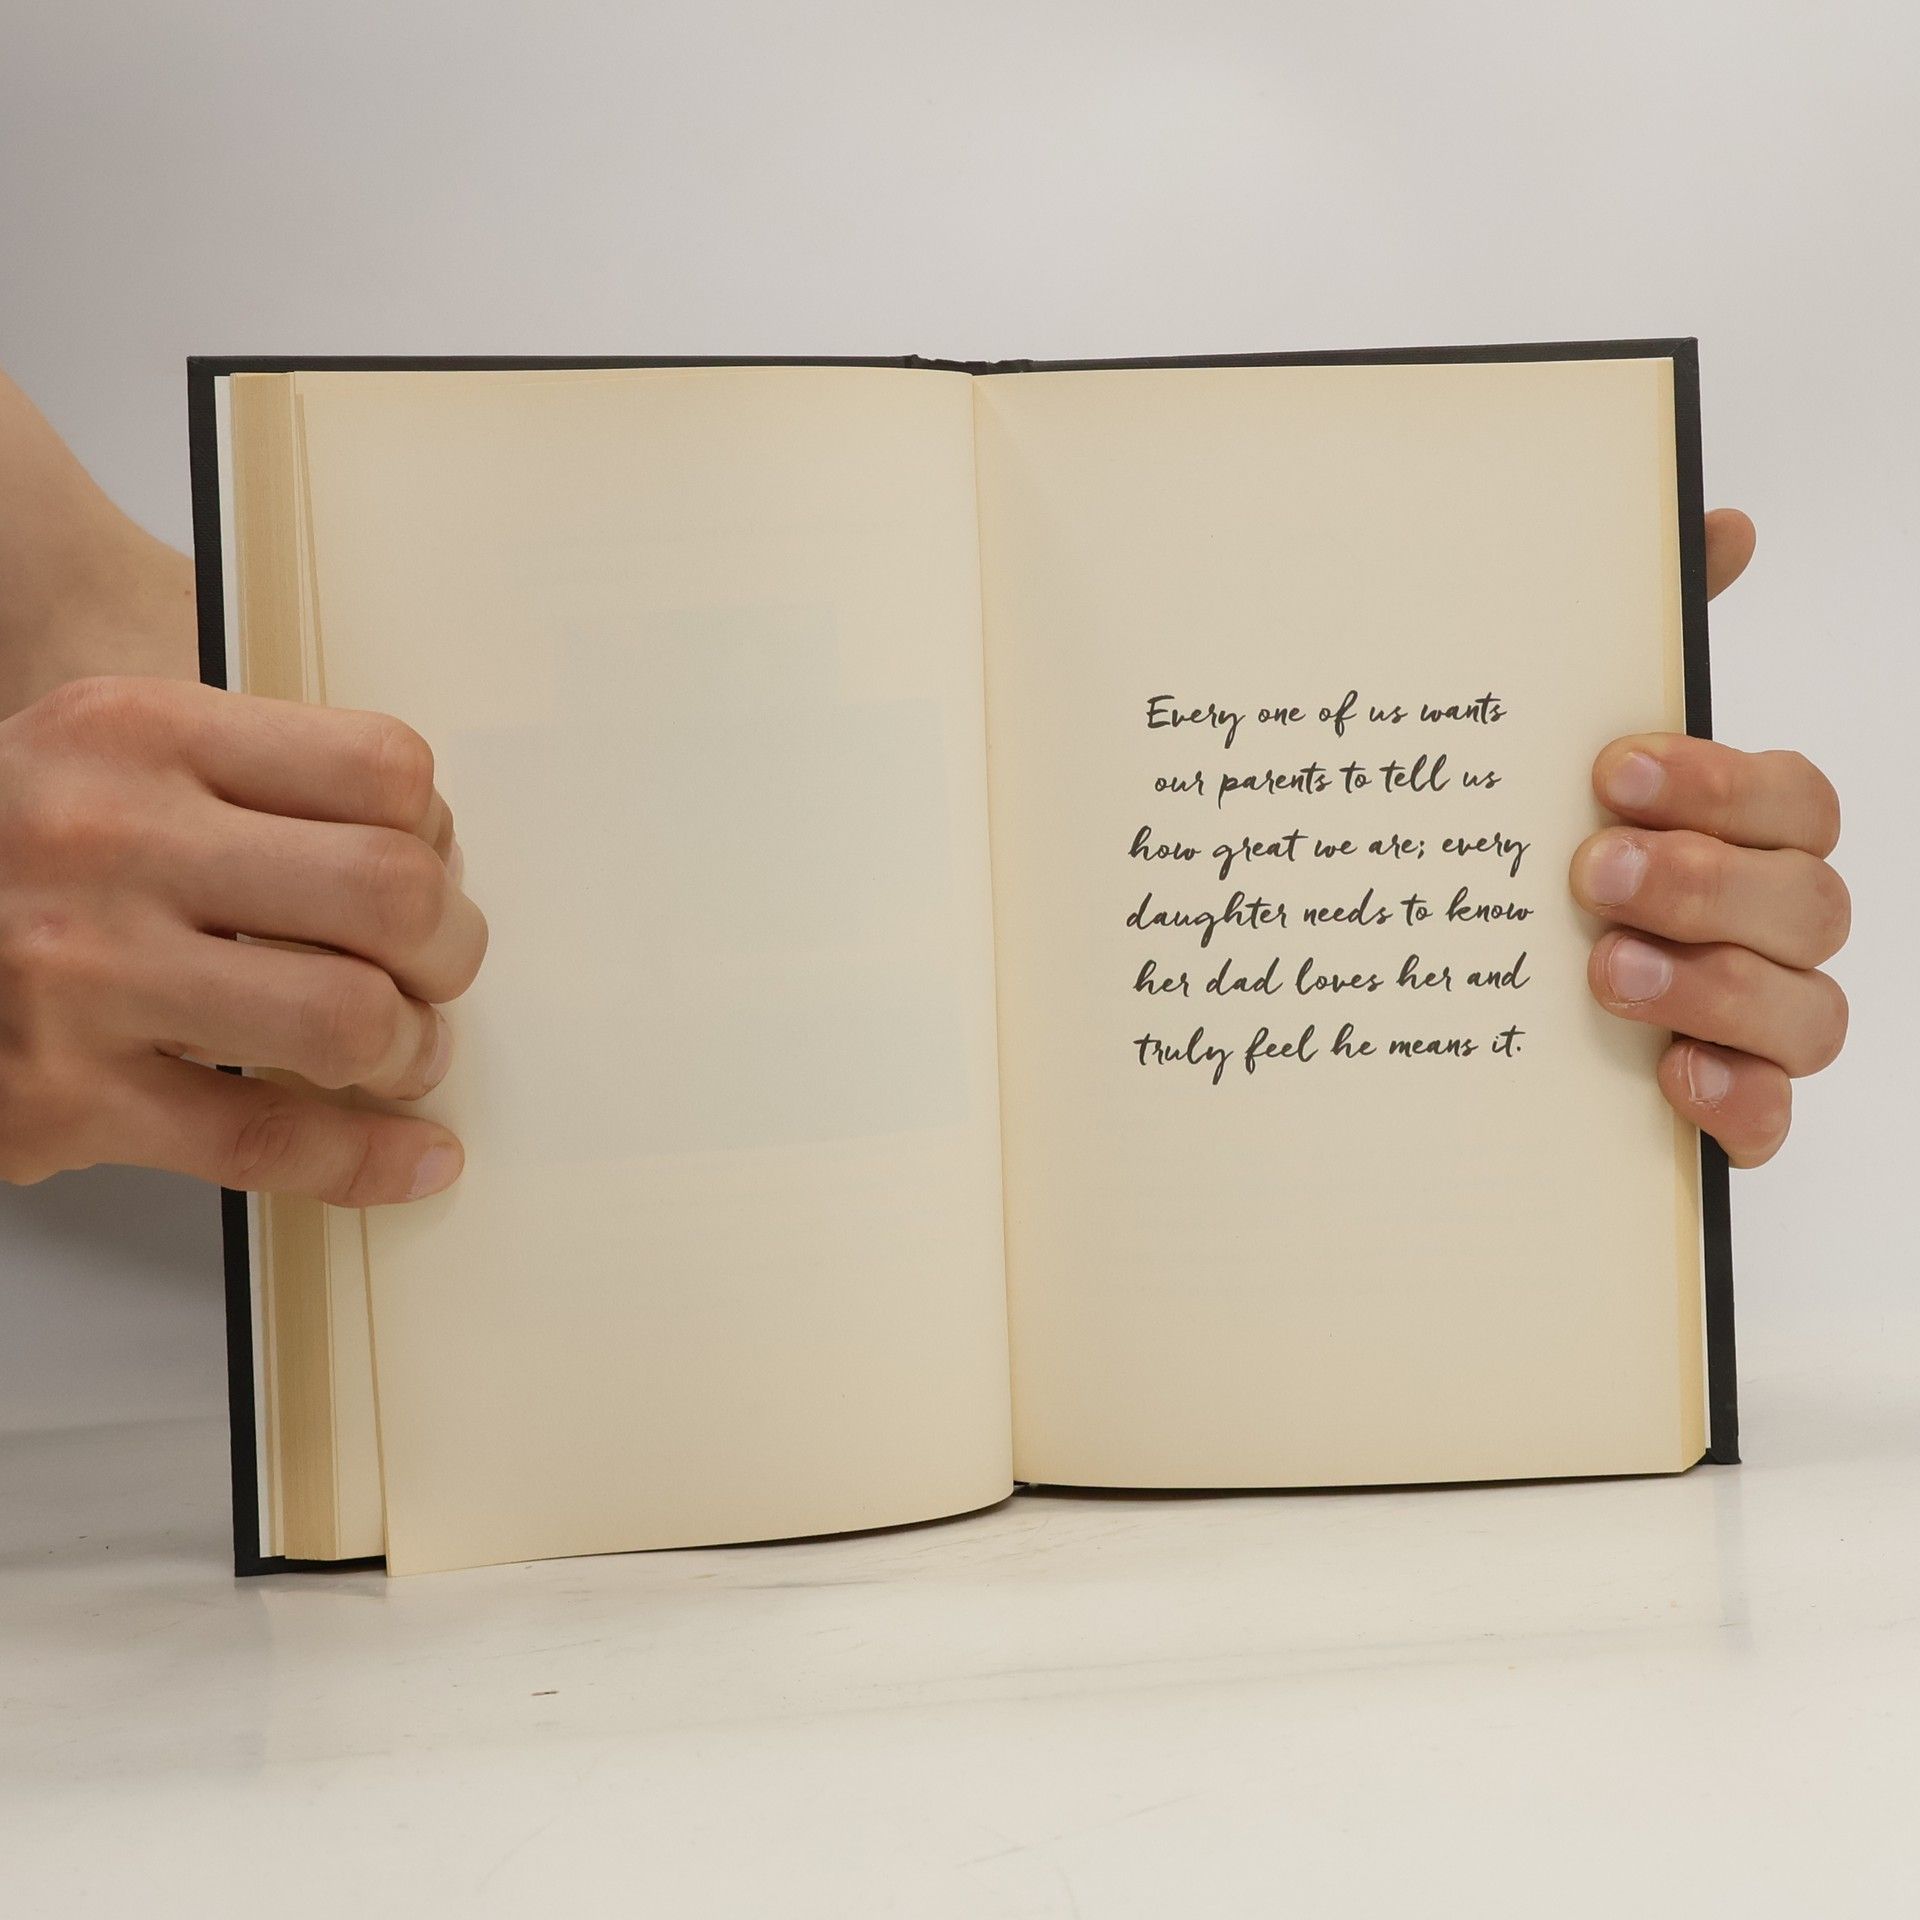 Every one of us wants
our parents to tell us
how great we are; every
daughter needs to know
her dad loves her and
truly feel he means it.